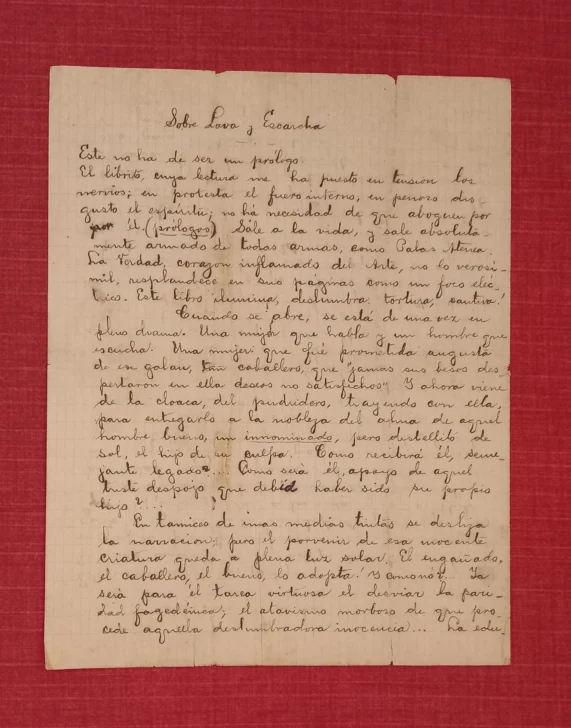 Sobre Lava y Escarcha
Este no ha de ser un prólogo.
El librito, cuya lectura me ha puesto en tensión los
nervios; en protesta el fuero interno; en penoso dis-
gusto el espíritu; no ha necesidad de que aboguen por
por él (prólogos) Sále a la vida, y sale absoluta-
mente armado de todas armas, como Palas Atenea.
La Verdad, corazón inflamado del Arte, no lo verosi-
mil, resplandece en sus páginas como un foco eléc-
trico. Este libro ilumina, deslumbra. tortura, cautiva!
Cuando se abre, se está de una vez en
pleno drama. Una mujer que habla y un hombre que
escucha. Una mujer que fué prometida augusta
de ese galan, tan caballero, que "jamas sus besos des-
pertaron en ella deseos no satisfechos" Y ahora viene
de la cloaca, del pudridero, trayendo con ella,
para entregarlo a la nobleza del alma de aquel
hombre bueno, un innominado, pero destellito de
sol, el hijo de su culpa. Como recibirá él, seme-
jante legado?... Como será él, apoyo de aquel
triste despojo que debió haber sido su propio
hijo?....
En tamices de unas medias tintas se desliza
la narracion; pero el porvenir de esa inocente
criatura queda a plena luz solar. El engañado,
el caballero, el bueno, lo adopta! Y como nó?... Ya
será para él tarea virtuosa el desviar la
fagedénica; el atavismo morboso de que pro-
cede aquella deslumbradora inocencia... La edu-